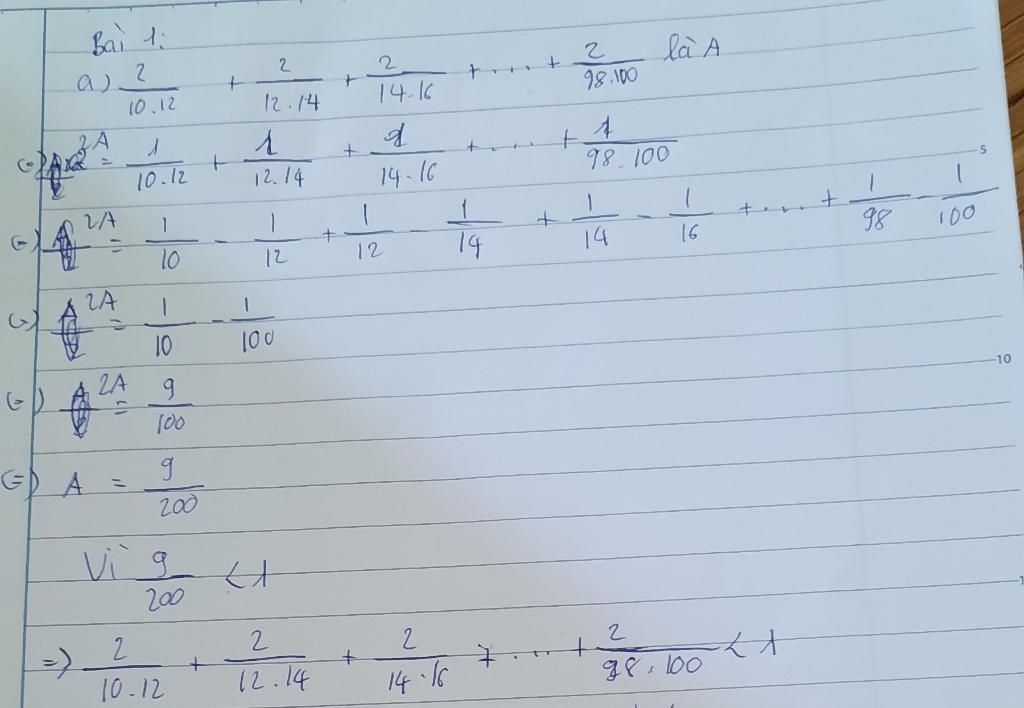 Bài 1:
a) 2/10.12 + 2/12.14 + 2/14.16 + .... + 2/98.100 là A
(=) 2A = 1/10.12 + 1/12.14 + 1/14.16 + .... + 1/98.100
(=) 2A = 1/10 - 1/12 + 1/12 - 1/14 + 1/14 - 1/16 + .... + 1/98 - 1/100
5
(=) 2A = 1/10 - 1/100
10
(=) 2A = 9/100
(=) A = 9/200
Vì 9/200 < 1
=) 2/10.12 + 2/12.14 + 2/14.16 + .... + 2/98.100 < 1